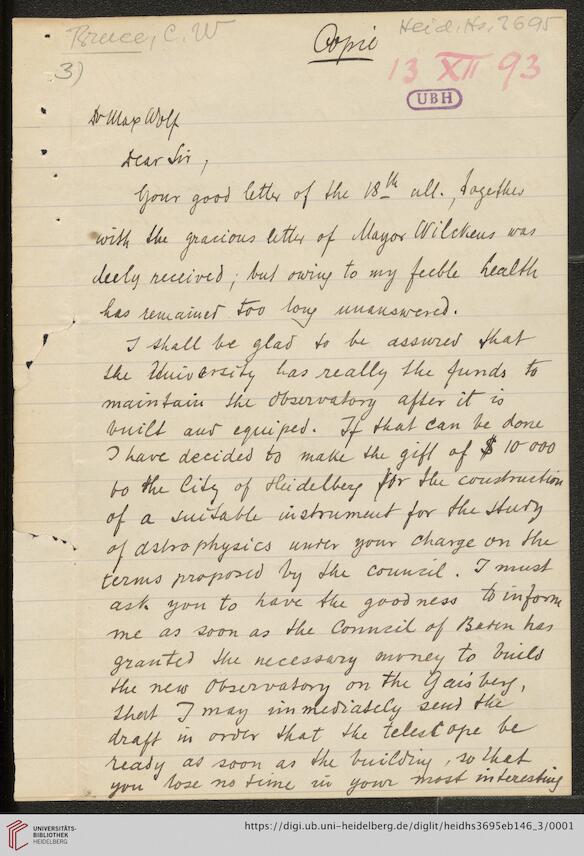 Bruce, C. W
Copie
Heid. Hs. 3695
3)
13 XII 93
UBH
Dr Max Wolf
Dear Sir,
Your good letter of the 18th ult., together
with the gracious letter of Mayor Wilckens was
duly received; but owing to my feeble health
has remained too long unanswered.
I shall be glad to be assured that
the University has really the funds to
maintain the Observatory after it is
built and equiped. If that can be done
I have decided to make the gift of $ 10 000
to the City of Heidelberg for the construction
of a suitable instrument for the study
of astrophysics under your charge on the
terms proposed by the council. I must
ask you to have the goodness to inform
me as soon as the Council of Baden has
granted the necessary money to build
the new Observatory on the Gaisberg,
that I may immediately send the
draft in order that the telescope be
ready as soon as the building, so that
you lose no time in your most interesting
UNIVERSITÄTS-
BIBLIOTHEK
HEIDELBERG
https://digi.ub.uni-heidelberg.de/diglit/heidhs3695eb146_3/0001